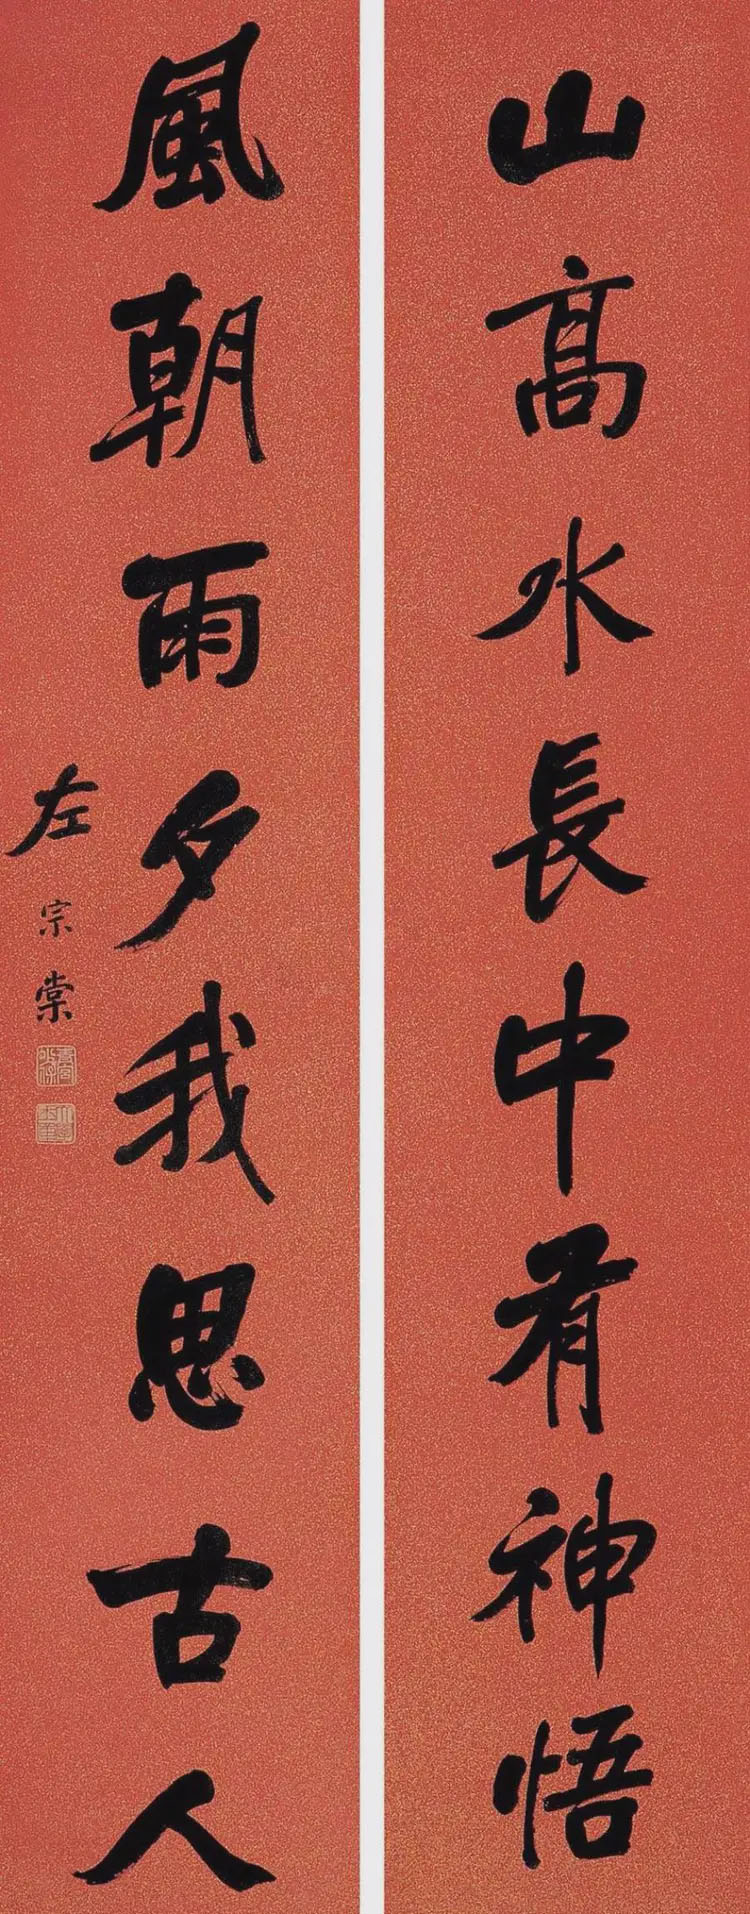 山高水長中有神悟
風朝雨夕我思古人
左宗棠